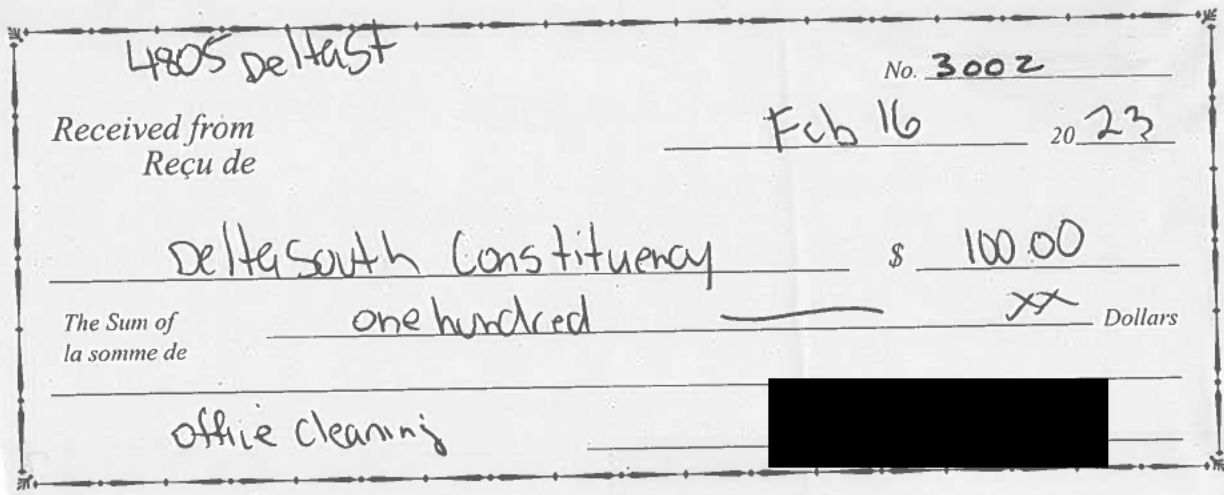 4805 Delta St
No. 3002
Received from
Reçu de
Feb 16 20 23
Delta South Constituency $ 100.00
The Sum of one hundred — xx Dollars
la somme de
office cleaning